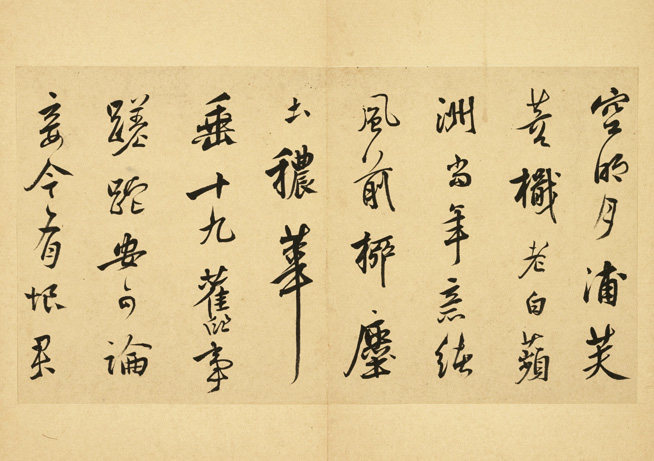 空明月浦芙
蓉檝老白蘋
洲當年意緒
風前柳塵
土穠華
垂十九舊事
蹉跎安可論
妾今有恨君